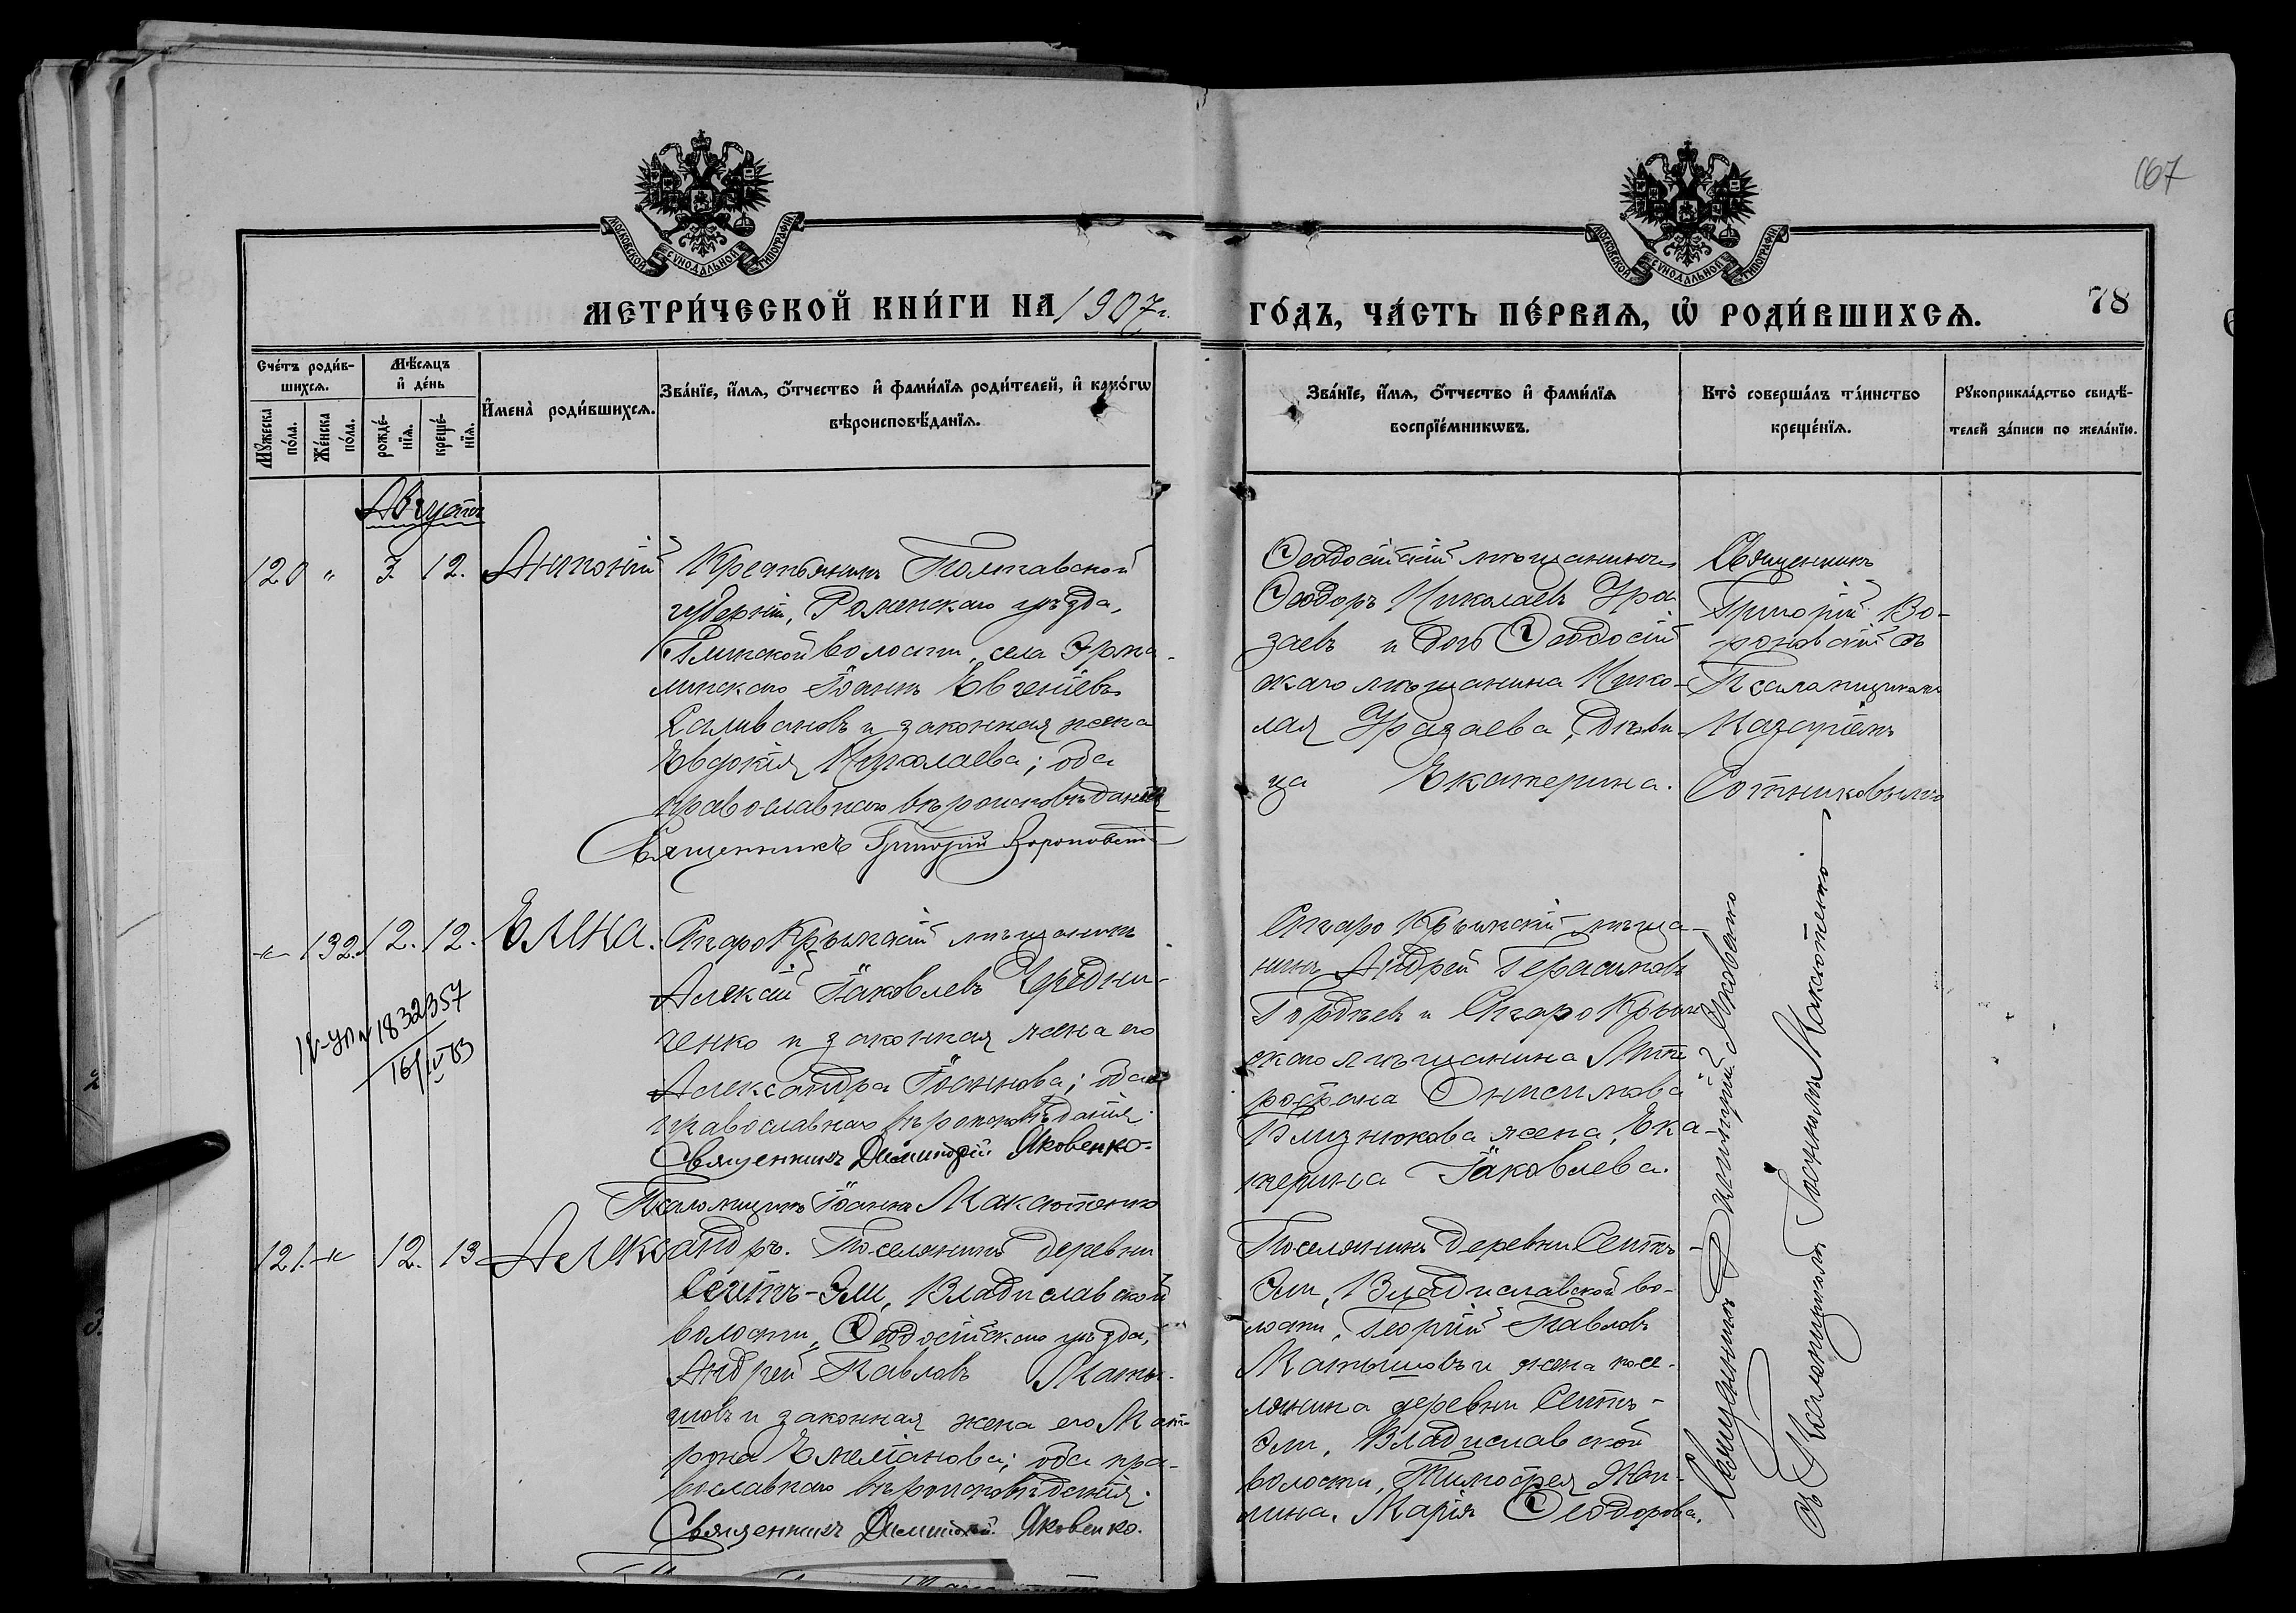 167
МОСКОВСКОЙ СѴНОДАЛЬНОЙ ТИПОГРАФІИ
МОСКОВСКОЙ СѴНОДАЛЬНОЙ ТИПОГРАФІИ
МЕТРИ́ЧЕСКОЙ КНИ́ГИ НА 1907 г.
ГО́ДЪ, ЧА́СТЬ ПЕ́РВАѦ, Ѽ РОДИ́ВШИХСѦ.
78
Сче́тъ роди́в-
шихсѧ.
Мꙋжеска по́ла.
Же́нска по́ла.
Мѣ́сѧцъ
и҆ де́нь
рожде́-
нїѧ.
креще́-
нїѧ.
И҆мена̀ роди́вшихсѧ.
Зва́нїе, и҆́мѧ, ѻ҆́тчество и҆ фами́лїѧ роди́телей, и҆ како́гѡ
вѣроисповѣ́данїѧ.
Зва́нїе, и҆́мѧ, ѻ҆́тчество и҆ фами́лїѧ
воспрїе́мникѡвъ.
Кто̀ соверша́лъ та́инство
креще́нїѧ.
Рꙋкоприкла́дство свидѣ́-
телей за́писи по жела́нїю.
Августъ
120 " 3. 12. Антоній
Крестьянинъ Полтавской
губерніи, Роменскаго уѣзда,
Глинской волости, села
Іоаннъ Евгеніевъ
Саливановъ и законная жена
Евдокія Николаева; оба
православнаго вѣроисповѣданія
Священникъ Григорій Вороновскій
Ѳеодосійскій мѣщанинъ
Ѳеодоръ Николаевъ Ура-
заевъ и дочь Ѳеодосій
скаго мѣщанина Нико-
лая Уразаева, дѣви-
ца Екатерина.
Священникъ
Григорій Во-
роновскій съ
Псаломщикомъ
Сотниковымъ
" 132. 12. 12. Елена.
1832357
16/IV 83
СтароКрымскій мѣщанинъ
Алексій Іаковлевъ Чередни-
ченко и законная жена его
Александра Іоаннова; оба
православнаго вѣроисповѣданія.
Священникъ Димитрій Яковенко.
Псаломщикъ Іоаннъ Максютенко
СтароКрымскій мѣща-
нинъ Андрей Герасимовъ
Гордѣевъ и СтароКрым
скаго мѣщанина Мит-
рофана Онисимова
Близнюкова жена, Ека-
терина Іаковлева.
Священникъ Димитрій Яковенко
съ Псаломщикомъ Іоанномъ Максютенко
121. " 12. 13 Александръ.
Поселянинъ деревни
Сеитъ-Эли, Владиславской
волости, Ѳеодосійскаго уѣзда,
Андрей Павловъ Маты-
шовъ и законная жена его Мат-
рона Емеліанова; оба пра-
вославнаго вѣроисповѣданія.
Священникъ Димитрій Яковенко.
Поселянинъ деревни Сеитъ-
Эли, Владиславской во-
лости, Георгій Павловъ
Матышовъ и жена посе-
лянина деревни Сеитъ-
Эли, Владиславской
волости, Тимофея
Марія Ѳеодорова.